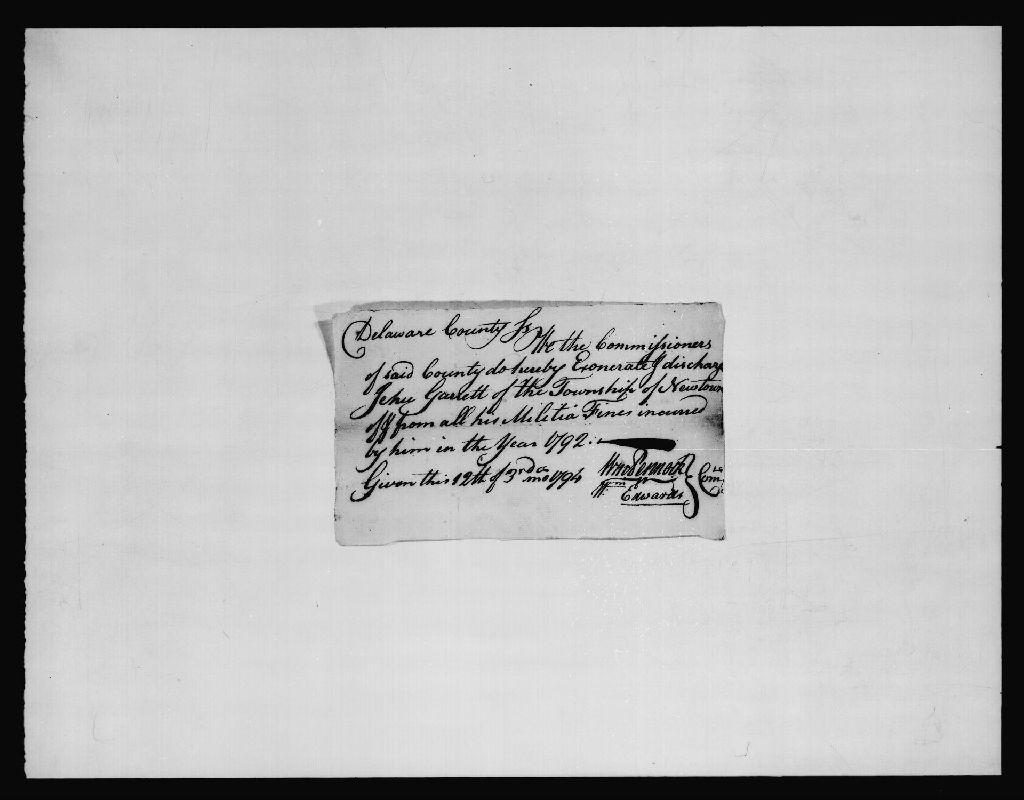 Delaware County Ss We the Commissioners
of said County do hereby Exonerate & discharge
Jehu Garrett of the Township of Newtown
off from all his Militia Fines incurred
by him in the Year 1792.
Given this 12th of 3rd mo 1794 Wm Pennock
Wm Edwards } Com